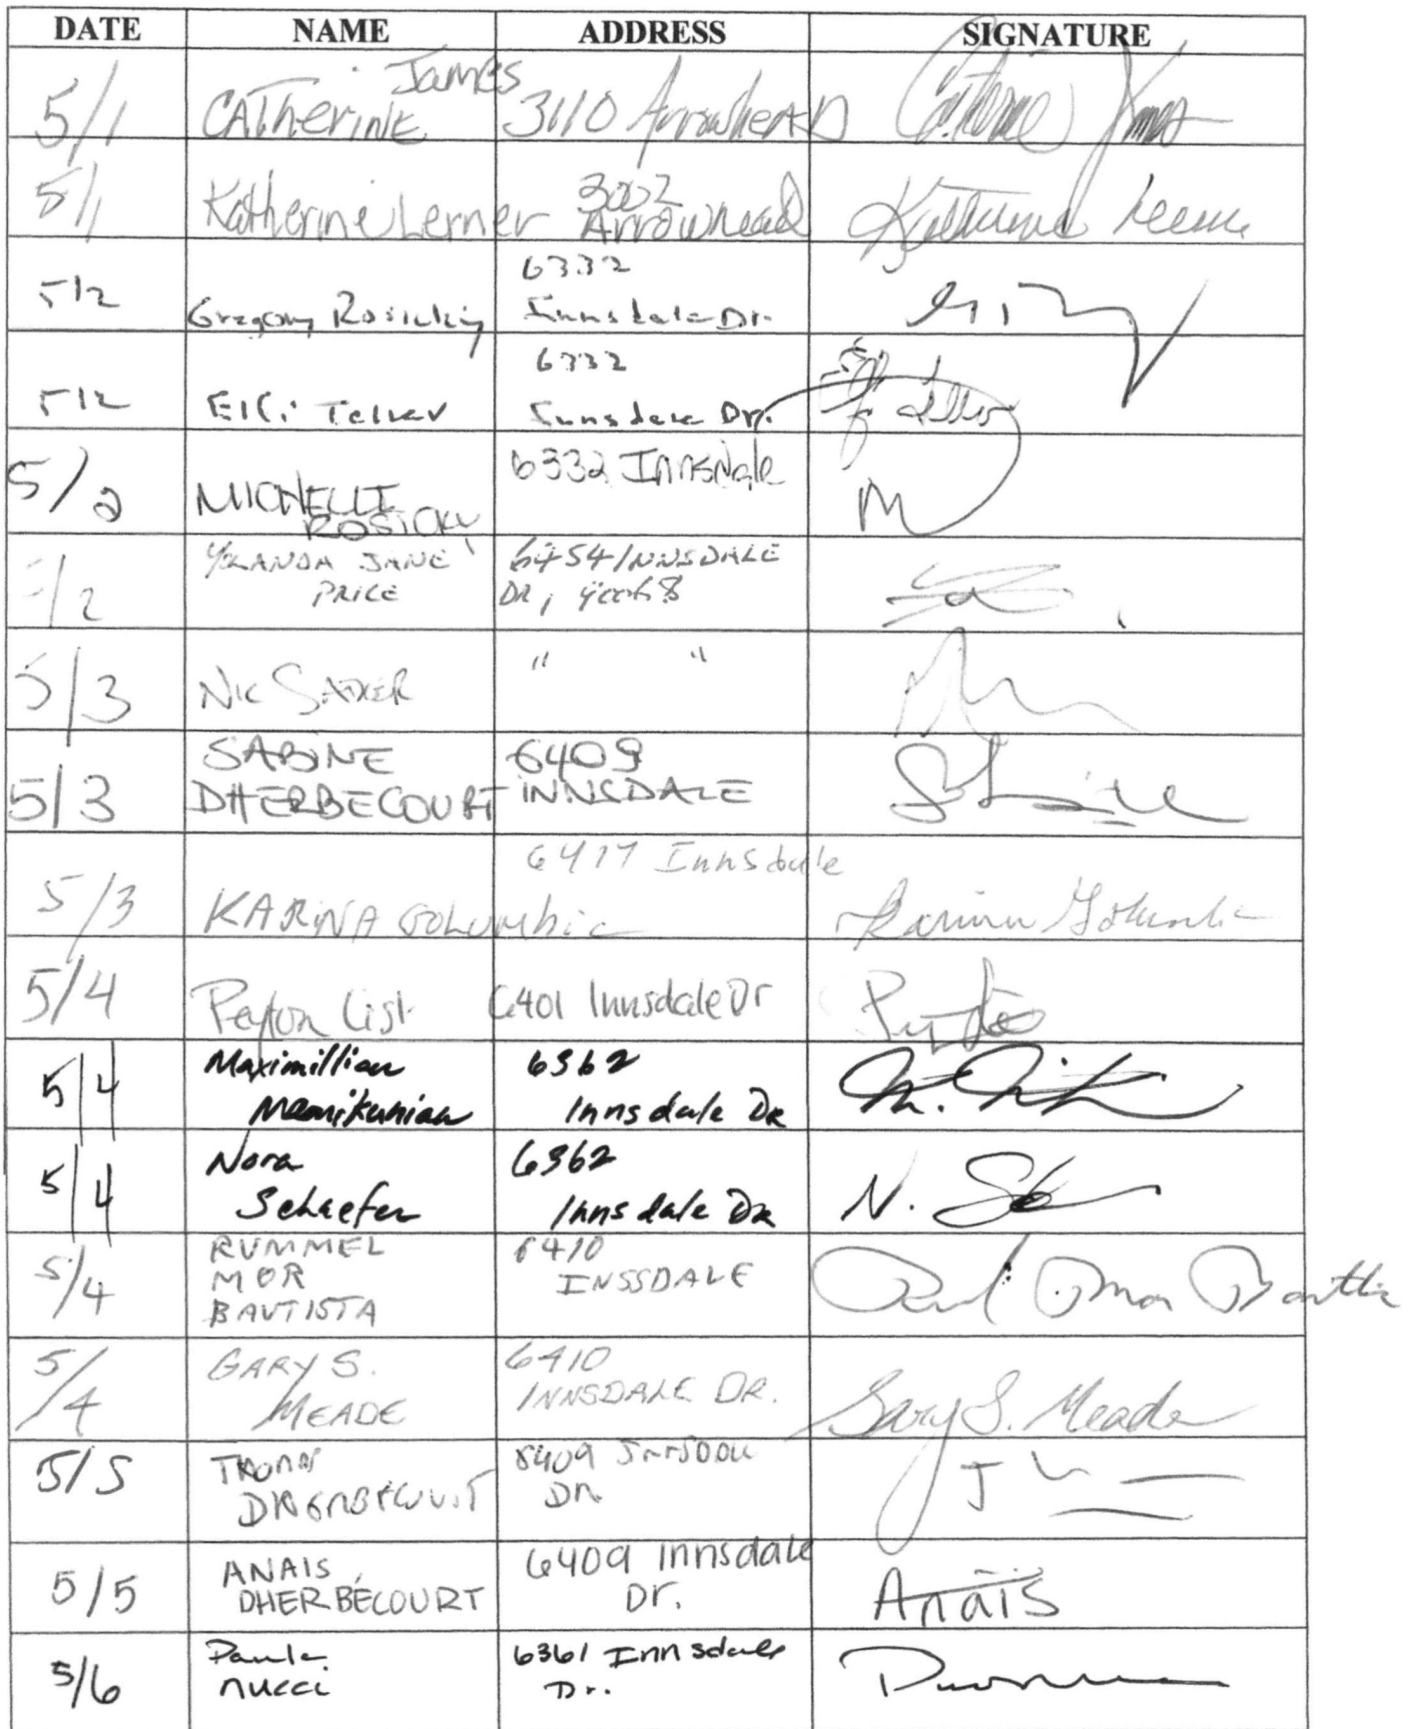 DATE NAME ADDRESS SIGNATURE
5/1 James
CATherine 3110 ArrowheAD Catherine James
5/1 Katherine Lerner 3002
Arrowhead Katherine Lerner
5/2 Gregory Rosicky 6332
Innsdale Dr.
5/2 Elfi 6332
Innsdale Dr.
5/2 MICHELLE
ROSICKY 6332 Innsdale
M
/2 YOLANDA JANE
PRICE 6454 INNSDALE
DR, 90068
5/3 Nic " "
5/3 SABINE
DHERBECOURT 6409
INNSDALE
5/3 KARINA GOLumbic 6417 Innsdale Karina Golumbic
5/4 Peyton List 6401 Innsdale Dr
5/4 Maximillian
Mamikunian 6362
Innsdale Dr
5/4 Nora
Schaefer 6362
Innsdale Dr N.
5/4 RUMMEL
MOR
BAUTISTA 6410
INSSDALE
5/4 GARY S.
MEADE 6410
INNSDALE DR. Gary S. Meade
5/5 6409
DR.
5/5 ANAIS
DHERBÉCOURT 6409 Innsdale
Dr. Anaïs
5/6 Paula
nucci 6361 Innsdale
Dr.